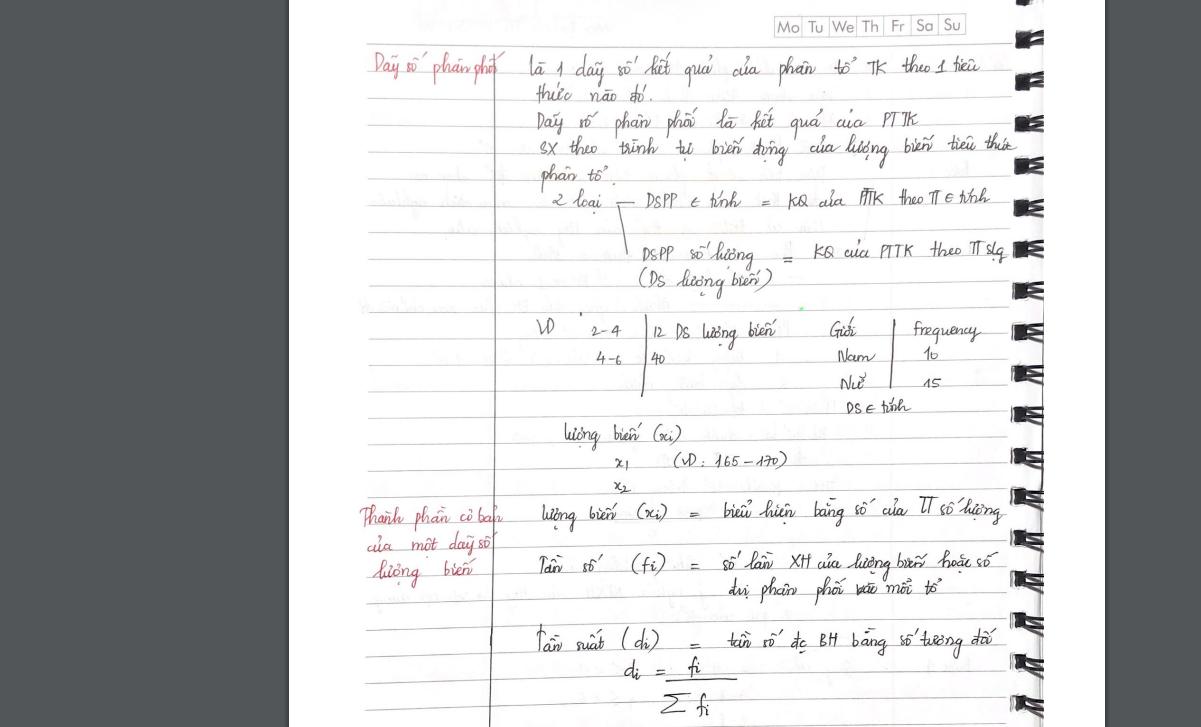 Mo Tu We Th Fr Sa Su
Dãy số phân phối là 1 dãy số kết quả của phân tổ TK theo 1 tiêu
thức nào đó.
Dãy số phân phối là kết quả của PTTK
SX theo trình tự biến động của lượng biến tiêu thức
phân tổ.
2 loại — DSPP ∈ tính = KQ của PTTK theo TT ∈ tính
DSPP số lượng = KQ của PTTK theo TT slg
(DS lượng biến)
VD 2-4 | 12 DS lượng biến Giới | frequency
4-6 | 40 Nam | 10
Nữ | 15
DS ∈ tính
lượng biến (xi)
x1 (VD: 165-170)
x2
Thành phần cơ bản lượng biến (xi) = biểu hiện bằng số của TT số lượng
của một dãy số
lượng biến Tần số (fi) = số lần XH của lượng biến hoặc số
đvị phân phối vào mỗi tổ
Tần suất (di) = tần số đc BH bằng số tương đối
di = fi
∑ fi